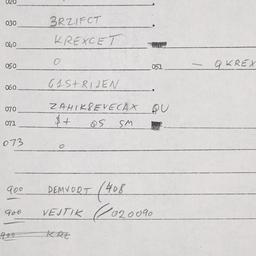 020
030 BRZIFCT
040 KREXCET
050 0 051 — QKREX
060 GISTRIJEN
070 ZAHIKREVECAX QU
071 $+ QS SM
073 0
900 DEMVORT (408
900 VEJTIK (/020090